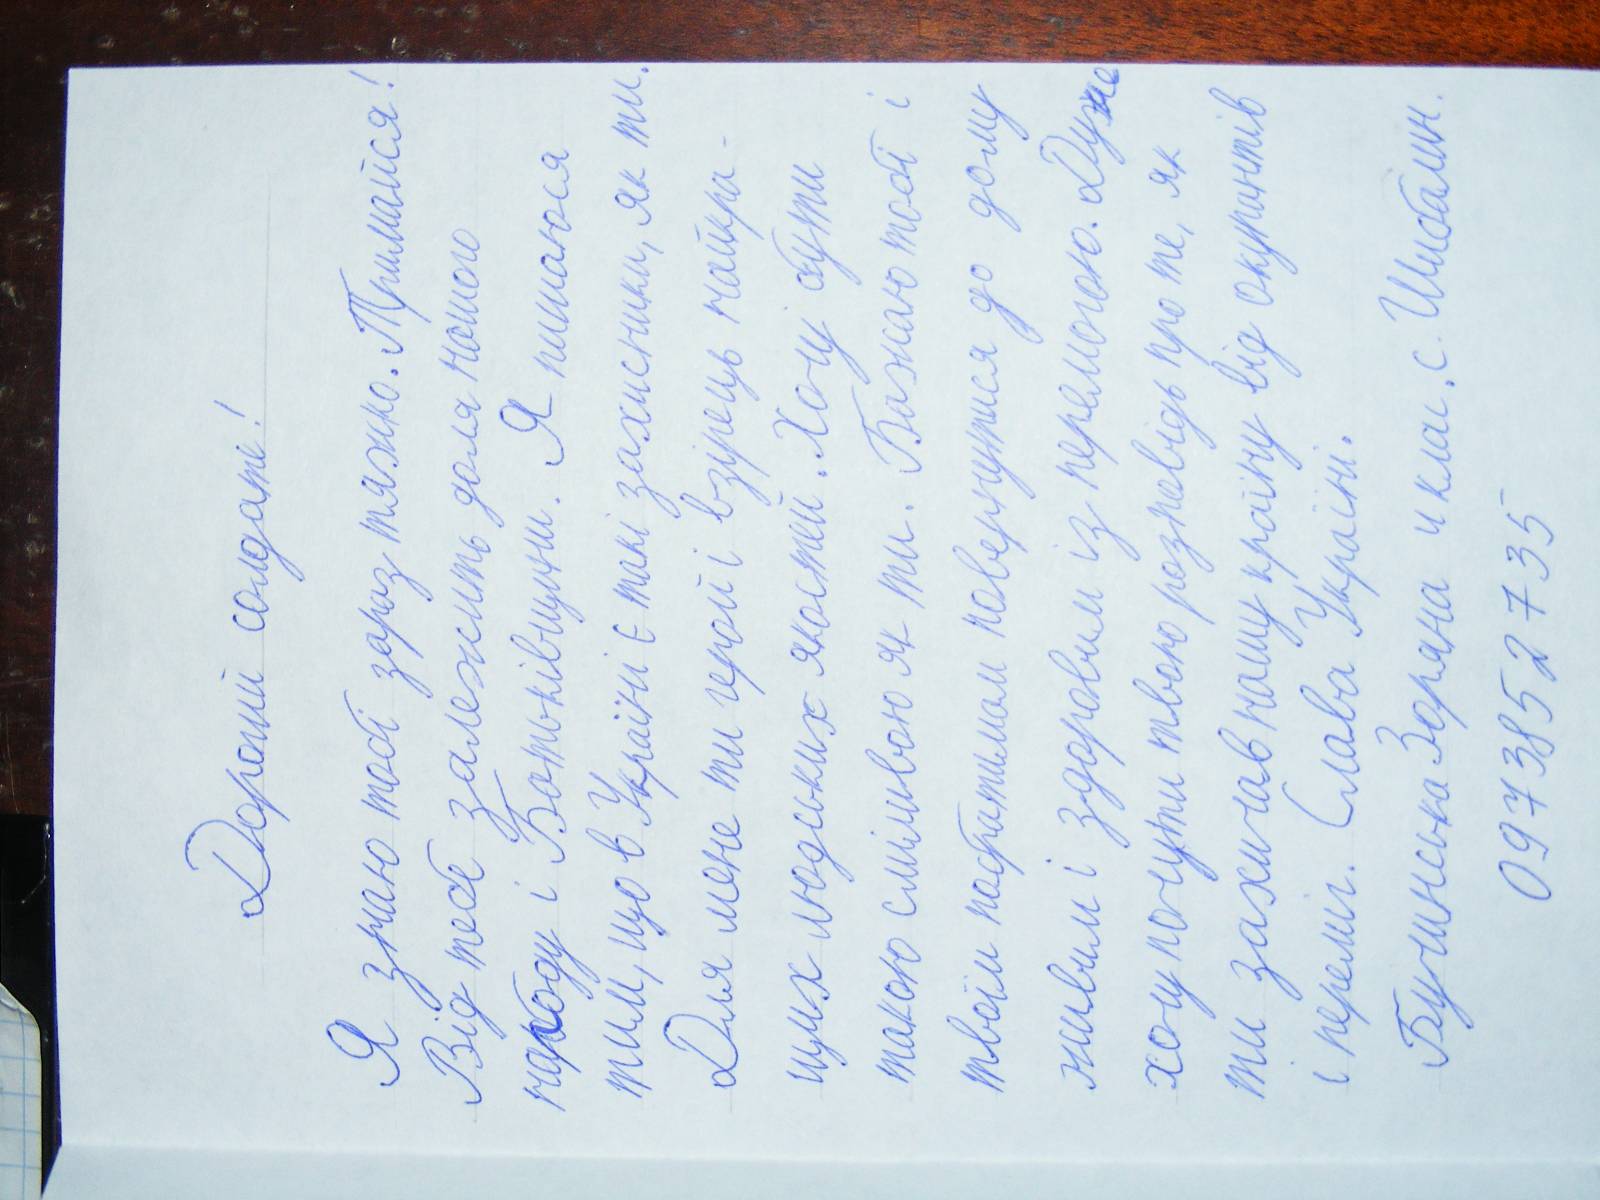 Дорогий солдате!
Я знаю тобі зараз тяжко. Тримайся!
Від тебе залежить доля нашого
народу і Батьківщини. Я пишаюся
тим, що в Україні є такі захисники, як ти.
Для мене ти герой і взірець найкра-
щих людських якостей. Хочу бути
такою сміливою як ти. Бажаю тобі і
твоїм побратимам повернутися до дому
живим і здоровим із перемогою. Дуже
хочу почути твою розповідь про те, як
ти захищав нашу країну від окупантів
і переміг. Слава Україні.
Бучинська Зоряна 4 клас. с.
0973852735